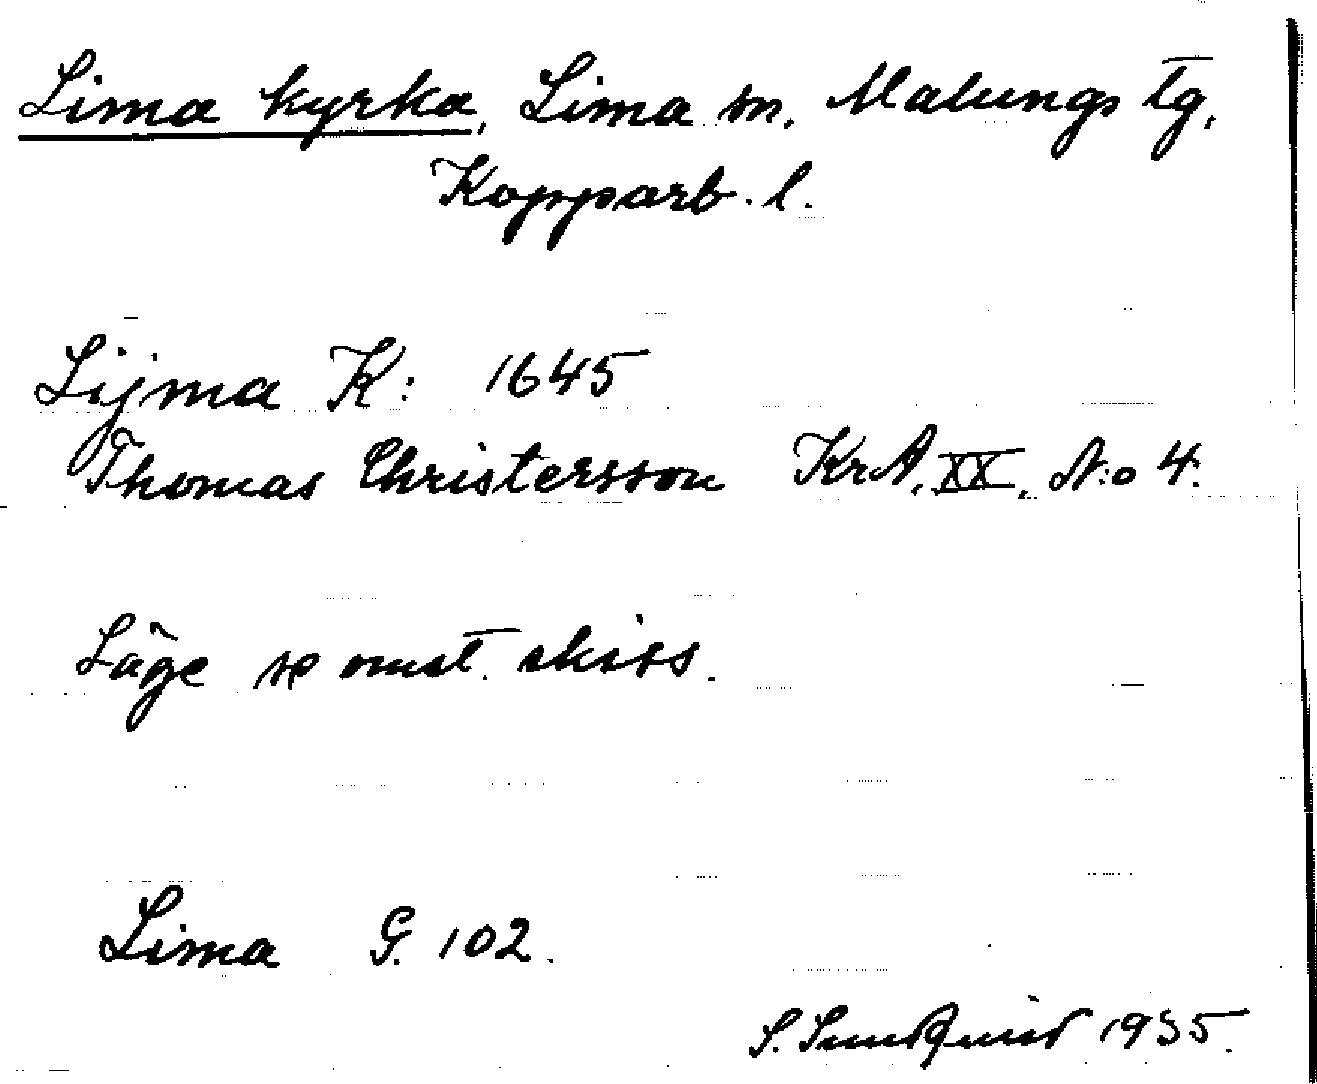 Lima kyrka, Lima sn. Malungs tg,
Kopparb. l.
Lijma K: 1645
Thomas Christersson KrA, XX, N:o 4.
Läge se omst. skiss.
Lima G. 102.
S. Sundquist 1935.